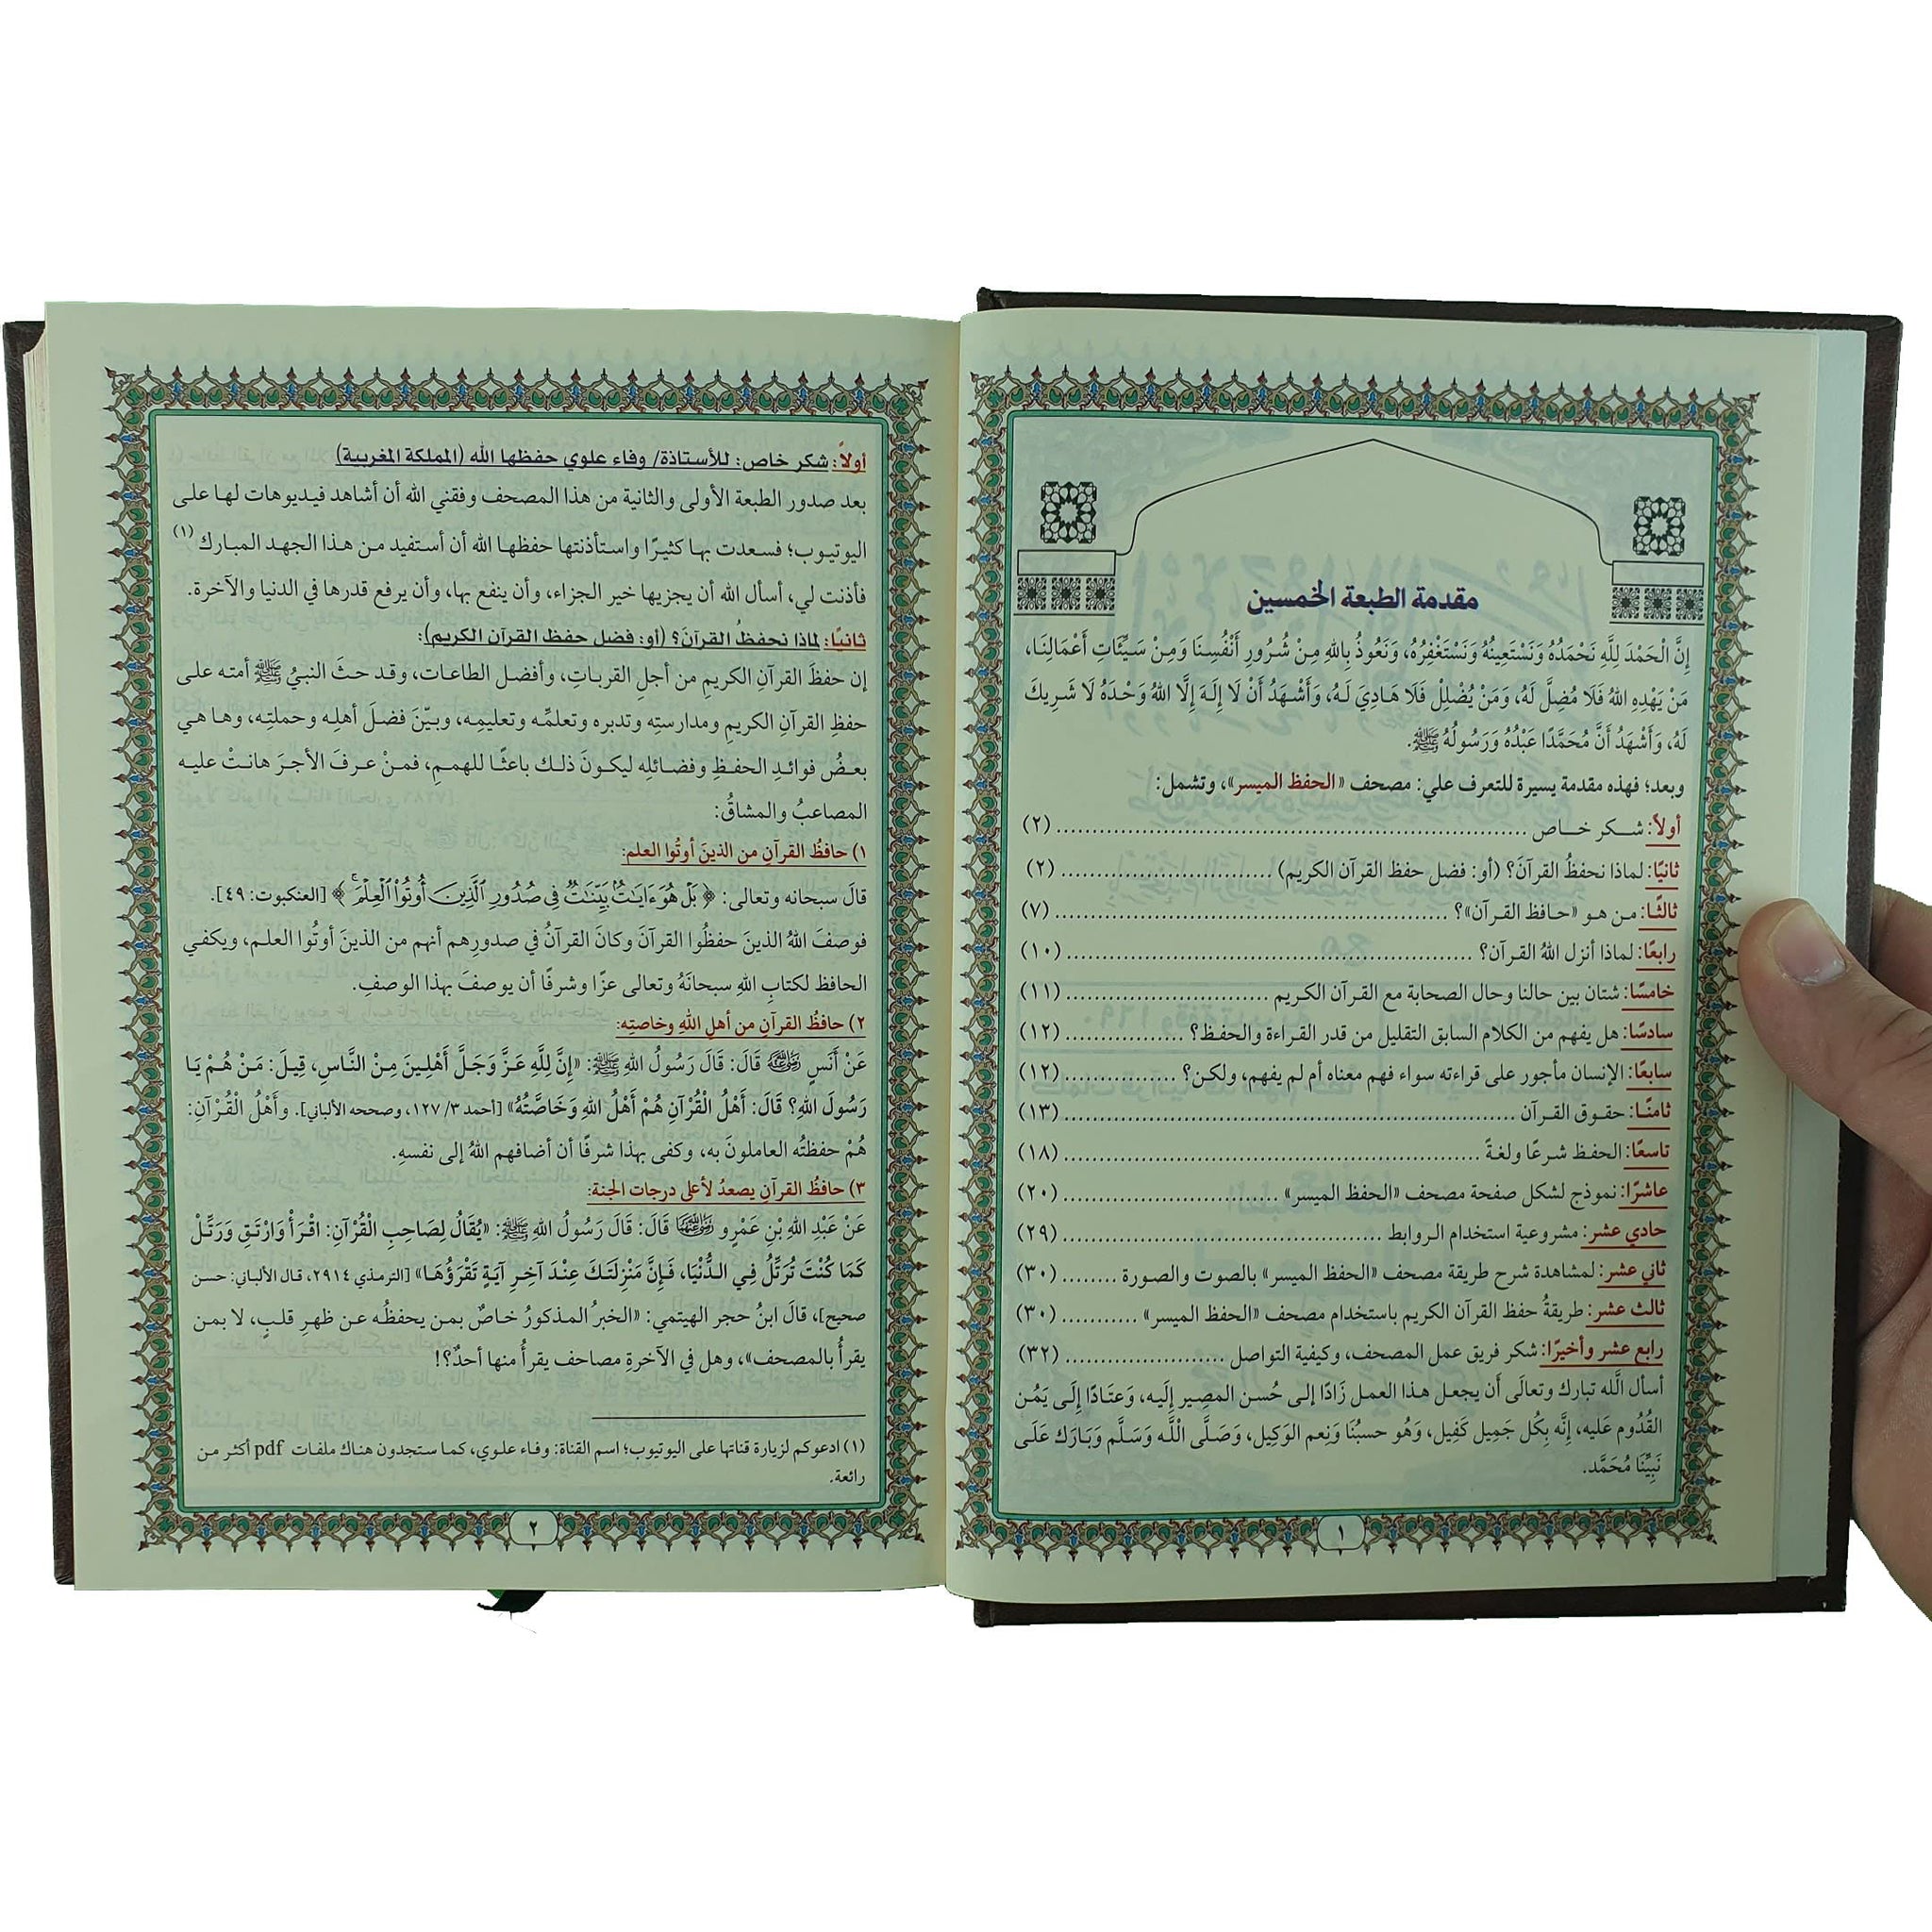 مقدمة الطبعة الخمسين
إِنَّ الْحَمْدَ لِلَّهِ نَحْمَدُهُ وَنَسْتَعِينُهُ وَنَسْتَغْفِرُهُ، وَنَعُوذُ بِاللهِ مِنْ شُرُورِ أَنْفُسِنَا وَمِنْ سَيِّئَاتِ أَعْمَالِنَا،
مَنْ يَهْدِهِ اللهُ فَلَا مُضِلَّ لَهُ، وَمَنْ يُضْلِلْ فَلَا هَادِيَ لَهُ، وَأَشْهَدُ أَنْ لَا إِلَهَ إِلَّا اللهُ وَحْدَهُ لَا شَرِيكَ
لَهُ، وَأَشْهَدُ أَنَّ مُحَمَّدًا عَبْدُهُ وَرَسُولُهُ ﷺ.
وبعد؛ فهذه مقدمة يسيرة للتعرف علي: مصحف «الحفظ الميسر»، وتشمل:
أولاً: شكر خاص ........ (٢)
ثانيًا: لماذا نحفظُ القرآنَ؟ (أو: فضل حفظ القرآن الكريم) ........ (٢)
ثالثًا: من هو «حافظ القرآن»؟ ........ (٧)
رابعًا: لماذا أنزل اللهُ القرآن؟ ........ (١٠)
خامسًا: شتان بين حالنا وحال الصحابة مع القرآن الكريم ........ (١١)
سادسًا: هل يفهم من الكلام السابق التقليل من قدر القراءة والحفظ؟ ........ (١٢)
سابعًا: الإنسان مأجور على قراءته سواء فهم معناه أم لم يفهم، ولكن؟ ........ (١٢)
ثامنًا: حقوق القرآن ........ (١٣)
تاسعًا: الحفظ شرعًا ولغةً ........ (١٨)
عاشرًا: نموذج لشكل صفحة مصحف «الحفظ الميسر» ........ (٢٠)
حادي عشر: مشروعية استخدام الروابط ........ (٢٩)
ثاني عشر: لمشاهدة شرح طريقة مصحف «الحفظ الميسر» بالصوت والصورة ........ (٣٠)
ثالث عشر: طريقةُ حفظ القرآن الكريم باستخدام مصحف «الحفظ الميسر» ........ (٣٠)
رابع عشر وأخيرًا: شكر فريق عمل المصحف، وكيفية التواصل ........ (٣٢)
أسأل الَّله تبارك وتعالَى أَن يجعل هذا العمل زَادًا إلى حُسن المصِير إلَيه، وَعتَادًا إلَى يَمُن
القُدُوم عَليه، إنَّه بِكُل جَمِيل كَفِيل، وَهُو حسبُنَا وَنِعم الوَكِيل، وَصَلَّى الْلَّه وَسَلَّم وَبَارَك عَلَى
نَبِيِّنَا مُحَمَّد.
١
أولاً: شكر خاص: للأستاذة/ وفاء علوي حفظها الله (المملكة المغربية)
بعد صدور الطبعة الأولى والثانية من هذا المصحف وفقني الله أن أشاهد فيديوهات لها على
اليوتيوب؛ فسعدت بها كثيرًا واستأذنتها حفظها الله أن أستفيد من هذا الجهد المبارك (١)
فأذنت لي، أسأل الله أن يجزيها خير الجزاء، وأن ينفع بها، وأن يرفع قدرها في الدنيا والآخرة.
ثانيًا: لماذا نحفظُ القرآنَ؟ (أو: فضل حفظ القرآن الكريم):
إن حفظَ القرآنِ الكريمِ من أجلِ القرباتِ، وأفضلِ الطاعات، وقد حثَ النبيُ ﷺ أمته على
حفظِ القرآنِ الكريم ومدارستِه وتدبره وتعلمِّه وتعليمِه، وبيّنَ فضلَ أهلِه وحملتِه، وها هي
بعضُ فوائدِ الحفظِ وفضائلِه ليكونَ ذلك باعثًا للهممِ، فمنْ عرفَ الأجرَ هانتْ عليه
المصاعبُ والمشاقُ:
١) حافظُ القرآنِ من الذينَ أوتُوا العلم:
قالَ سبحانه وتعالى: ﴿ بَلْ هُوَ ءَايَٰتٌۢ بَيِّنَٰتٌ فِي صُدُورِ ٱلَّذِينَ أُوتُوا۟ ٱلْعِلْمَ ۚ ﴾ [العنكبوت: ٤٩].
فوصفَ اللهُ الذينَ حفظُوا القرآنَ وكانَ القرآنُ في صدورِهم أنهم من الذينَ أوتُوا العلم، ويكفي
الحافظ لكتابِ اللهِ سبحانَهُ وتعالى عزًا وشرفًا أن يوصفَ بهذا الوصفِ.
٢) حافظُ القرآنِ من أهلِ اللهِ وخاصتِه:
عَنْ أَنَسٍ رَضِيَ اللهُ عَنْهُ قَالَ: قَالَ رَسُولُ اللهِ ﷺ: «إِنَّ لِلَّهِ عَزَّ وَجَلَّ أَهْلِينَ مِنْ النَّاسِ، قِيلَ: مَنْ هُمْ يَا
رَسُولَ اللهِ؟ قَالَ: أَهْلُ الْقُرْآنِ هُمْ أَهْلُ اللهِ وَخَاصَّتُهُ» [أحمد ٣/ ١٢٧، وصححه الألباني]. وأَهْلُ الْقُرْآنِ:
هُمْ حفظتُه العاملونَ به، وكفى بهذا شرفًا أن أضافهم اللهُ إلى نفسهِ.
٣) حافظُ القرآنِ يصعدُ لأعلى درجات الجنة:
عَنْ عَبْدِ اللهِ بْنِ عَمْرٍو رَضِيَ اللهُ عَنْهُمَا قَالَ: قَالَ رَسُولُ اللهِ ﷺ: «يُقَالُ لِصَاحِبِ الْقُرْآنِ: اقْرَأْ وَارْتَقِ وَرَتِّلْ
كَمَا كُنْتَ تُرَتِّلُ فِي الدُّنْيَا، فَإِنَّ مَنْزِلَتَكَ عِنْدَ آخِرِ آيَةٍ تَقْرَؤُهَا» [الترمذي ٢٩١٤، قال الألباني: حسن
صحيح]، قالَ ابنُ حجر الهيتمي: «الخبرُ المذكورُ خاصٌ بمن يحفظُه عن ظهرِ قلبٍ، لا بمن
يقرأُ بالمصحف»، وهل في الآخرةِ مصاحف يقرأُ منها أحدٌ؟!
(١) ادعوكم لزيارة قناتها على اليوتيوب؛ اسم القناة: وفاء علوي، كما ستجدون هناك ملفات pdf أكثر من
رائعة.
٢